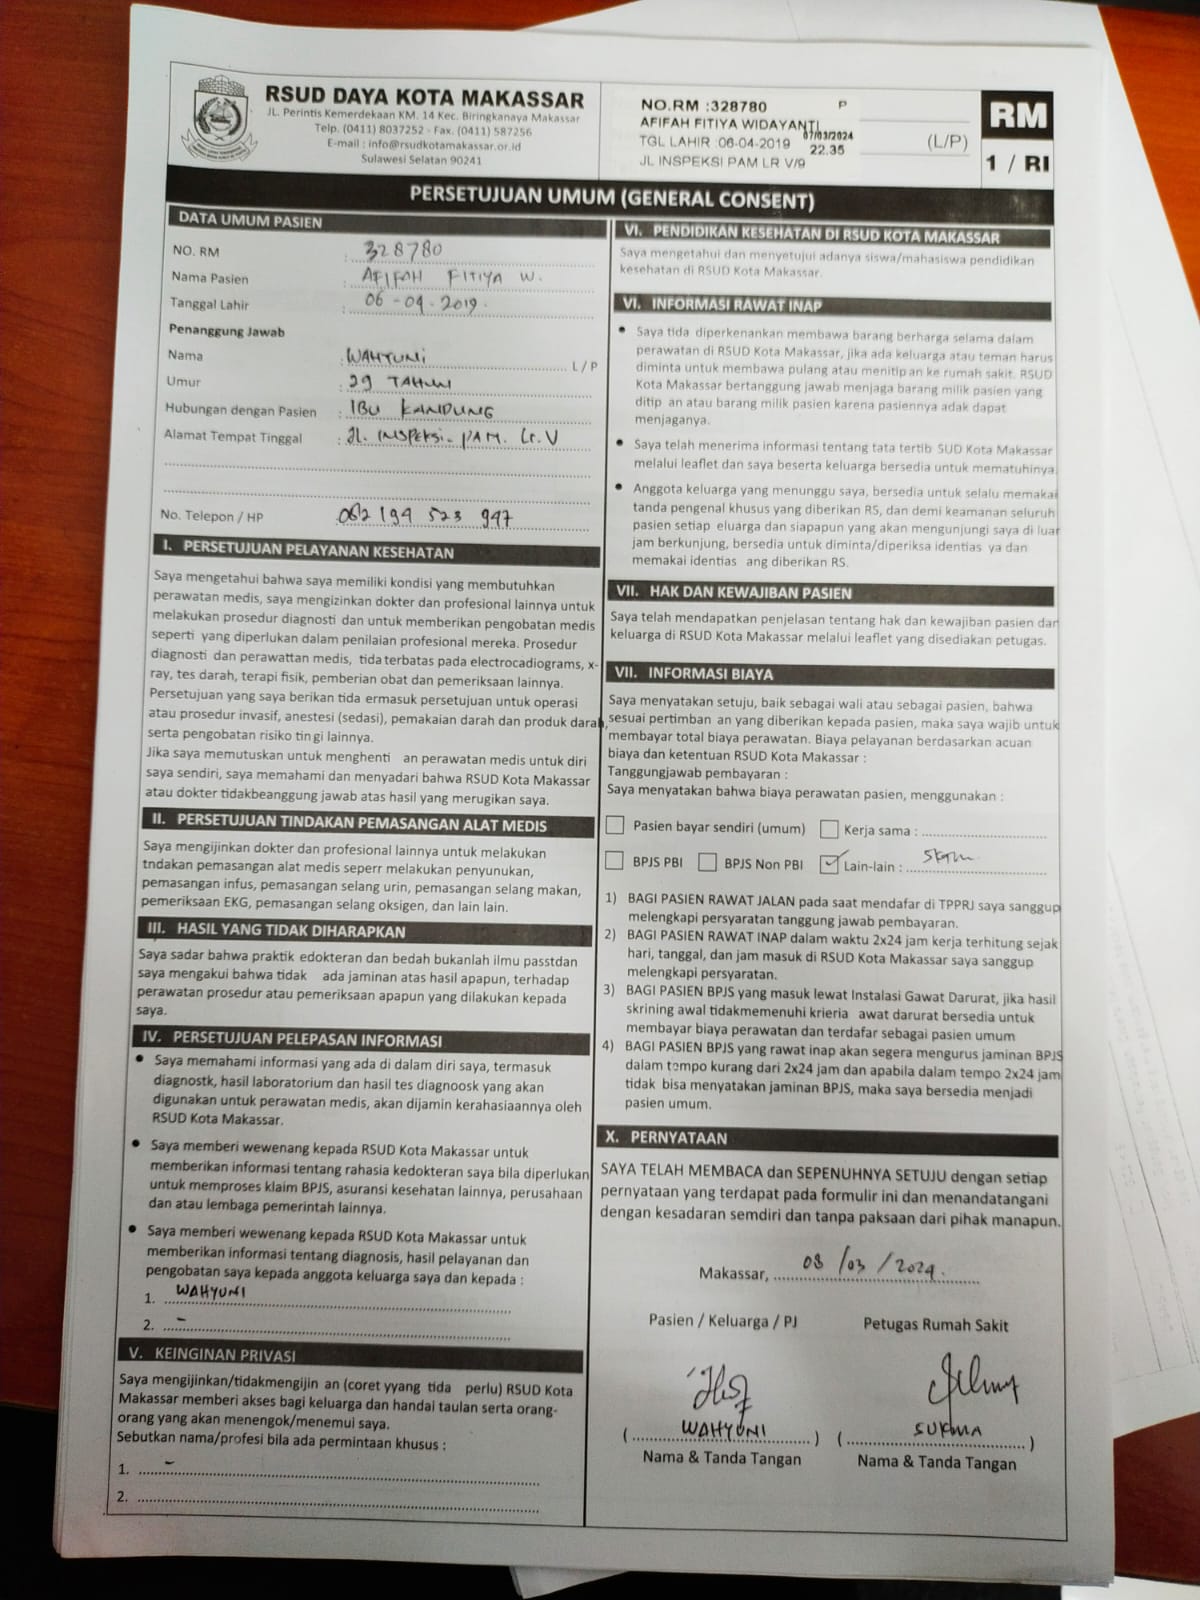 RSUD DAYA KOTA MAKASSAR
JL. Perintis Kemerdekaan KM. 14 Kec. Biringkanaya Makassar
Telp. (0411) 8037252 - Fax. (0411) 587256
E-mail : info@rsudkotamakassar.or.id
Sulawesi Selatan 90241
NO.RM :328780 P
AFIFAH FITIYA WIDAYANTI
07/03/2024
TGL LAHIR :06-04-2019 22.35
JL INSPEKSI PAM LR V/9
(L/P)
RM
1 / RI
PERSETUJUAN UMUM (GENERAL CONSENT)
DATA UMUM PASIEN
NO. RM : 328780
Nama Pasien : AFIFAH FITIYA W.
Tanggal Lahir : 06-04-2019
Penanggung Jawab
Nama : WAHYUNI L / P
Umur : 29 TAHUN
Hubungan dengan Pasien : IBU KANDUNG
Alamat Tempat Tinggal : Jl. INSPEKSI PAM. Lr. V
No. Telepon / HP : 082 194 523 947
I. PERSETUJUAN PELAYANAN KESEHATAN
Saya mengetahui bahwa saya memiliki kondisi yang membutuhkan
perawatan medis, saya mengizinkan dokter dan profesional lainnya untuk
melakukan prosedur diagnosti dan untuk memberikan pengobatan medis
seperti yang diperlukan dalam penilaian profesional mereka. Prosedur
diagnosti dan perawattan medis, tida terbatas pada electrocadiograms, x-
ray, tes darah, terapi fisik, pemberian obat dan pemeriksaan lainnya.
Persetujuan yang saya berikan tida ermasuk persetujuan untuk operasi
atau prosedur invasif, anestesi (sedasi), pemakaian darah dan produk darah,
serta pengobatan risiko tin gi lainnya.
Jika saya memutuskan untuk menghenti an perawatan medis untuk diri
saya sendiri, saya memahami dan menyadari bahwa RSUD Kota Makassar
atau dokter tidakbeanggung jawab atas hasil yang merugikan saya.
II. PERSETUJUAN TINDAKAN PEMASANGAN ALAT MEDIS
Saya mengijinkan dokter dan profesional lainnya untuk melakukan
tndakan pemasangan alat medis seperr melakukan penyunukan,
pemasangan infus, pemasangan selang urin, pemasangan selang makan,
pemeriksaan EKG, pemasangan selang oksigen, dan lain lain.
III. HASIL YANG TIDAK DIHARAPKAN
Saya sadar bahwa praktik edokteran dan bedah bukanlah ilmu passtdan
saya mengakui bahwa tidak ada jaminan atas hasil apapun, terhadap
perawatan prosedur atau pemeriksaan apapun yang dilakukan kepada
saya.
IV. PERSETUJUAN PELEPASAN INFORMASI
• Saya memahami informasi yang ada di dalam diri saya, termasuk
diagnostk, hasil laboratorium dan hasil tes diagnoosk yang akan
digunakan untuk perawatan medis, akan dijamin kerahasiaannya oleh
RSUD Kota Makassar.
• Saya memberi wewenang kepada RSUD Kota Makassar untuk
memberikan informasi tentang rahasia kedokteran saya bila diperlukan
untuk memproses klaim BPJS, asuransi kesehatan lainnya, perusahaan
dan atau lembaga pemerintah lainnya.
• Saya memberi wewenang kepada RSUD Kota Makassar untuk
memberikan informasi tentang diagnosis, hasil pelayanan dan
pengobatan saya kepada anggota keluarga saya dan kepada :
1. WAHYUNI
2. -
V. KEINGINAN PRIVASI
Saya mengijinkan/tidakmengijin an (coret yyang tida perlu) RSUD Kota
Makassar memberi akses bagi keluarga dan handai taulan serta orang-
orang yang akan menengok/menemui saya.
Sebutkan nama/profesi bila ada permintaan khusus :
1. -
2.
VI. PENDIDIKAN KESEHATAN DI RSUD KOTA MAKASSAR
Saya mengetahui dan menyetujui adanya siswa/mahasiswa pendidikan
kesehatan di RSUD Kota Makassar.
VI. INFORMASI RAWAT INAP
• Saya tida diperkenankan membawa barang berharga selama dalam
perawatan di RSUD Kota Makassar, jika ada keluarga atau teman harus
diminta untuk membawa pulang atau menitip an ke rumah sakit. RSUD
Kota Makassar bertanggung jawab menjaga barang milik pasien yang
ditip an atau barang milik pasien karena pasiennya adak dapat
menjaganya.
• Saya telah menerima informasi tentang tata tertib SUD Kota Makassar
melalui leaflet dan saya beserta keluarga bersedia untuk mematuhinya.
• Anggota keluarga yang menunggu saya, bersedia untuk selalu memakai
tanda pengenal khusus yang diberikan RS, dan demi keamanan seluruh
pasien setiap eluarga dan siapapun yang akan mengunjungi saya di luar
jam berkunjung, bersedia untuk diminta/diperiksa identias ya dan
memakai identias ang diberikan RS.
VII. HAK DAN KEWAJIBAN PASIEN
Saya telah mendapatkan penjelasan tentang hak dan kewajiban pasien dan
keluarga di RSUD Kota Makassar melalui leaflet yang disediakan petugas.
VII. INFORMASI BIAYA
Saya menyatakan setuju, baik sebagai wali atau sebagai pasien, bahwa
sesuai pertimban an yang diberikan kepada pasien, maka saya wajib untuk
membayar total biaya perawatan. Biaya pelayanan berdasarkan acuan
biaya dan ketentuan RSUD Kota Makassar :
Tanggungjawab pembayaran :
Saya menyatakan bahwa biaya perawatan pasien, menggunakan :
Pasien bayar sendiri (umum) Kerja sama :
BPJS PBI BPJS Non PBI ✓ Lain-lain : SKTM
1) BAGI PASIEN RAWAT JALAN pada saat mendafar di TPPRJ saya sanggup
melengkapi persyaratan tanggung jawab pembayaran.
2) BAGI PASIEN RAWAT INAP dalam waktu 2x24 jam kerja terhitung sejak
hari, tanggal, dan jam masuk di RSUD Kota Makassar saya sanggup
melengkapi persyaratan.
3) BAGI PASIEN BPJS yang masuk lewat Instalasi Gawat Darurat, jika hasil
skrining awal tidakmemenuhi krieria awat darurat bersedia untuk
membayar biaya perawatan dan terdafar sebagai pasien umum
4) BAGI PASIEN BPJS yang rawat inap akan segera mengurus jaminan BPJS
dalam tempo kurang dari 2x24 jam dan apabila dalam tempo 2x24 jam
tidak bisa menyatakan jaminan BPJS, maka saya bersedia menjadi
pasien umum.
X. PERNYATAAN
SAYA TELAH MEMBACA dan SEPENUHNYA SETUJU dengan setiap
pernyataan yang terdapat pada formulir ini dan menandatangani
dengan kesadaran semdiri dan tanpa paksaan dari pihak manapun.
Makassar, 08/03/2024.
Pasien / Keluarga / PJ Petugas Rumah Sakit
( WAHYUNI ) ( SUKMA )
Nama & Tanda Tangan Nama & Tanda Tangan